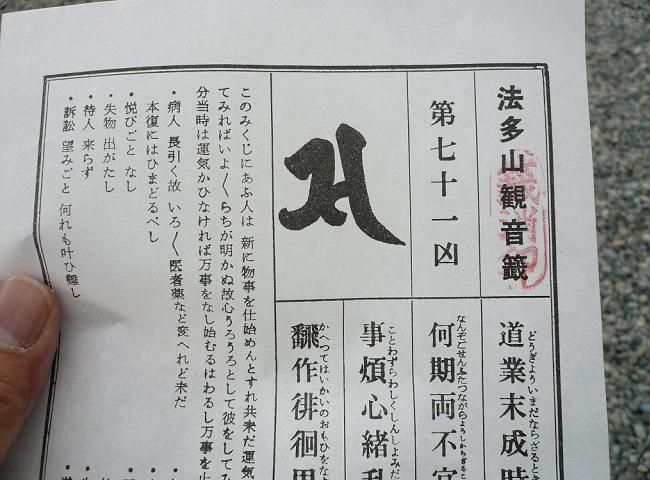 法多山観音籤
第七十一凶
道業未成時
どうぎょういまだならざるとき
何期両不宜
事煩心緒乱
ことわずらわしくしんしょみだ
飜作徘徊思
かへつてはいかいのおもひをな
このみくじにあふ人は 新に物事を仕始めんとすれ共未だ運気
てみればいよ〳〵らちが明かぬ故心うろうろとして彼をしてみ
分当時は運気かひなければ万事をなし始むるはわるし万事を止
・病人 長引く故 いろ〳〵医者薬など変へれど未だ
本復にはひまどるべし
・悦びごと なし
・失物 出がたし
・待人 来らず
・訴訟 望みごと 何れも叶ひ難し